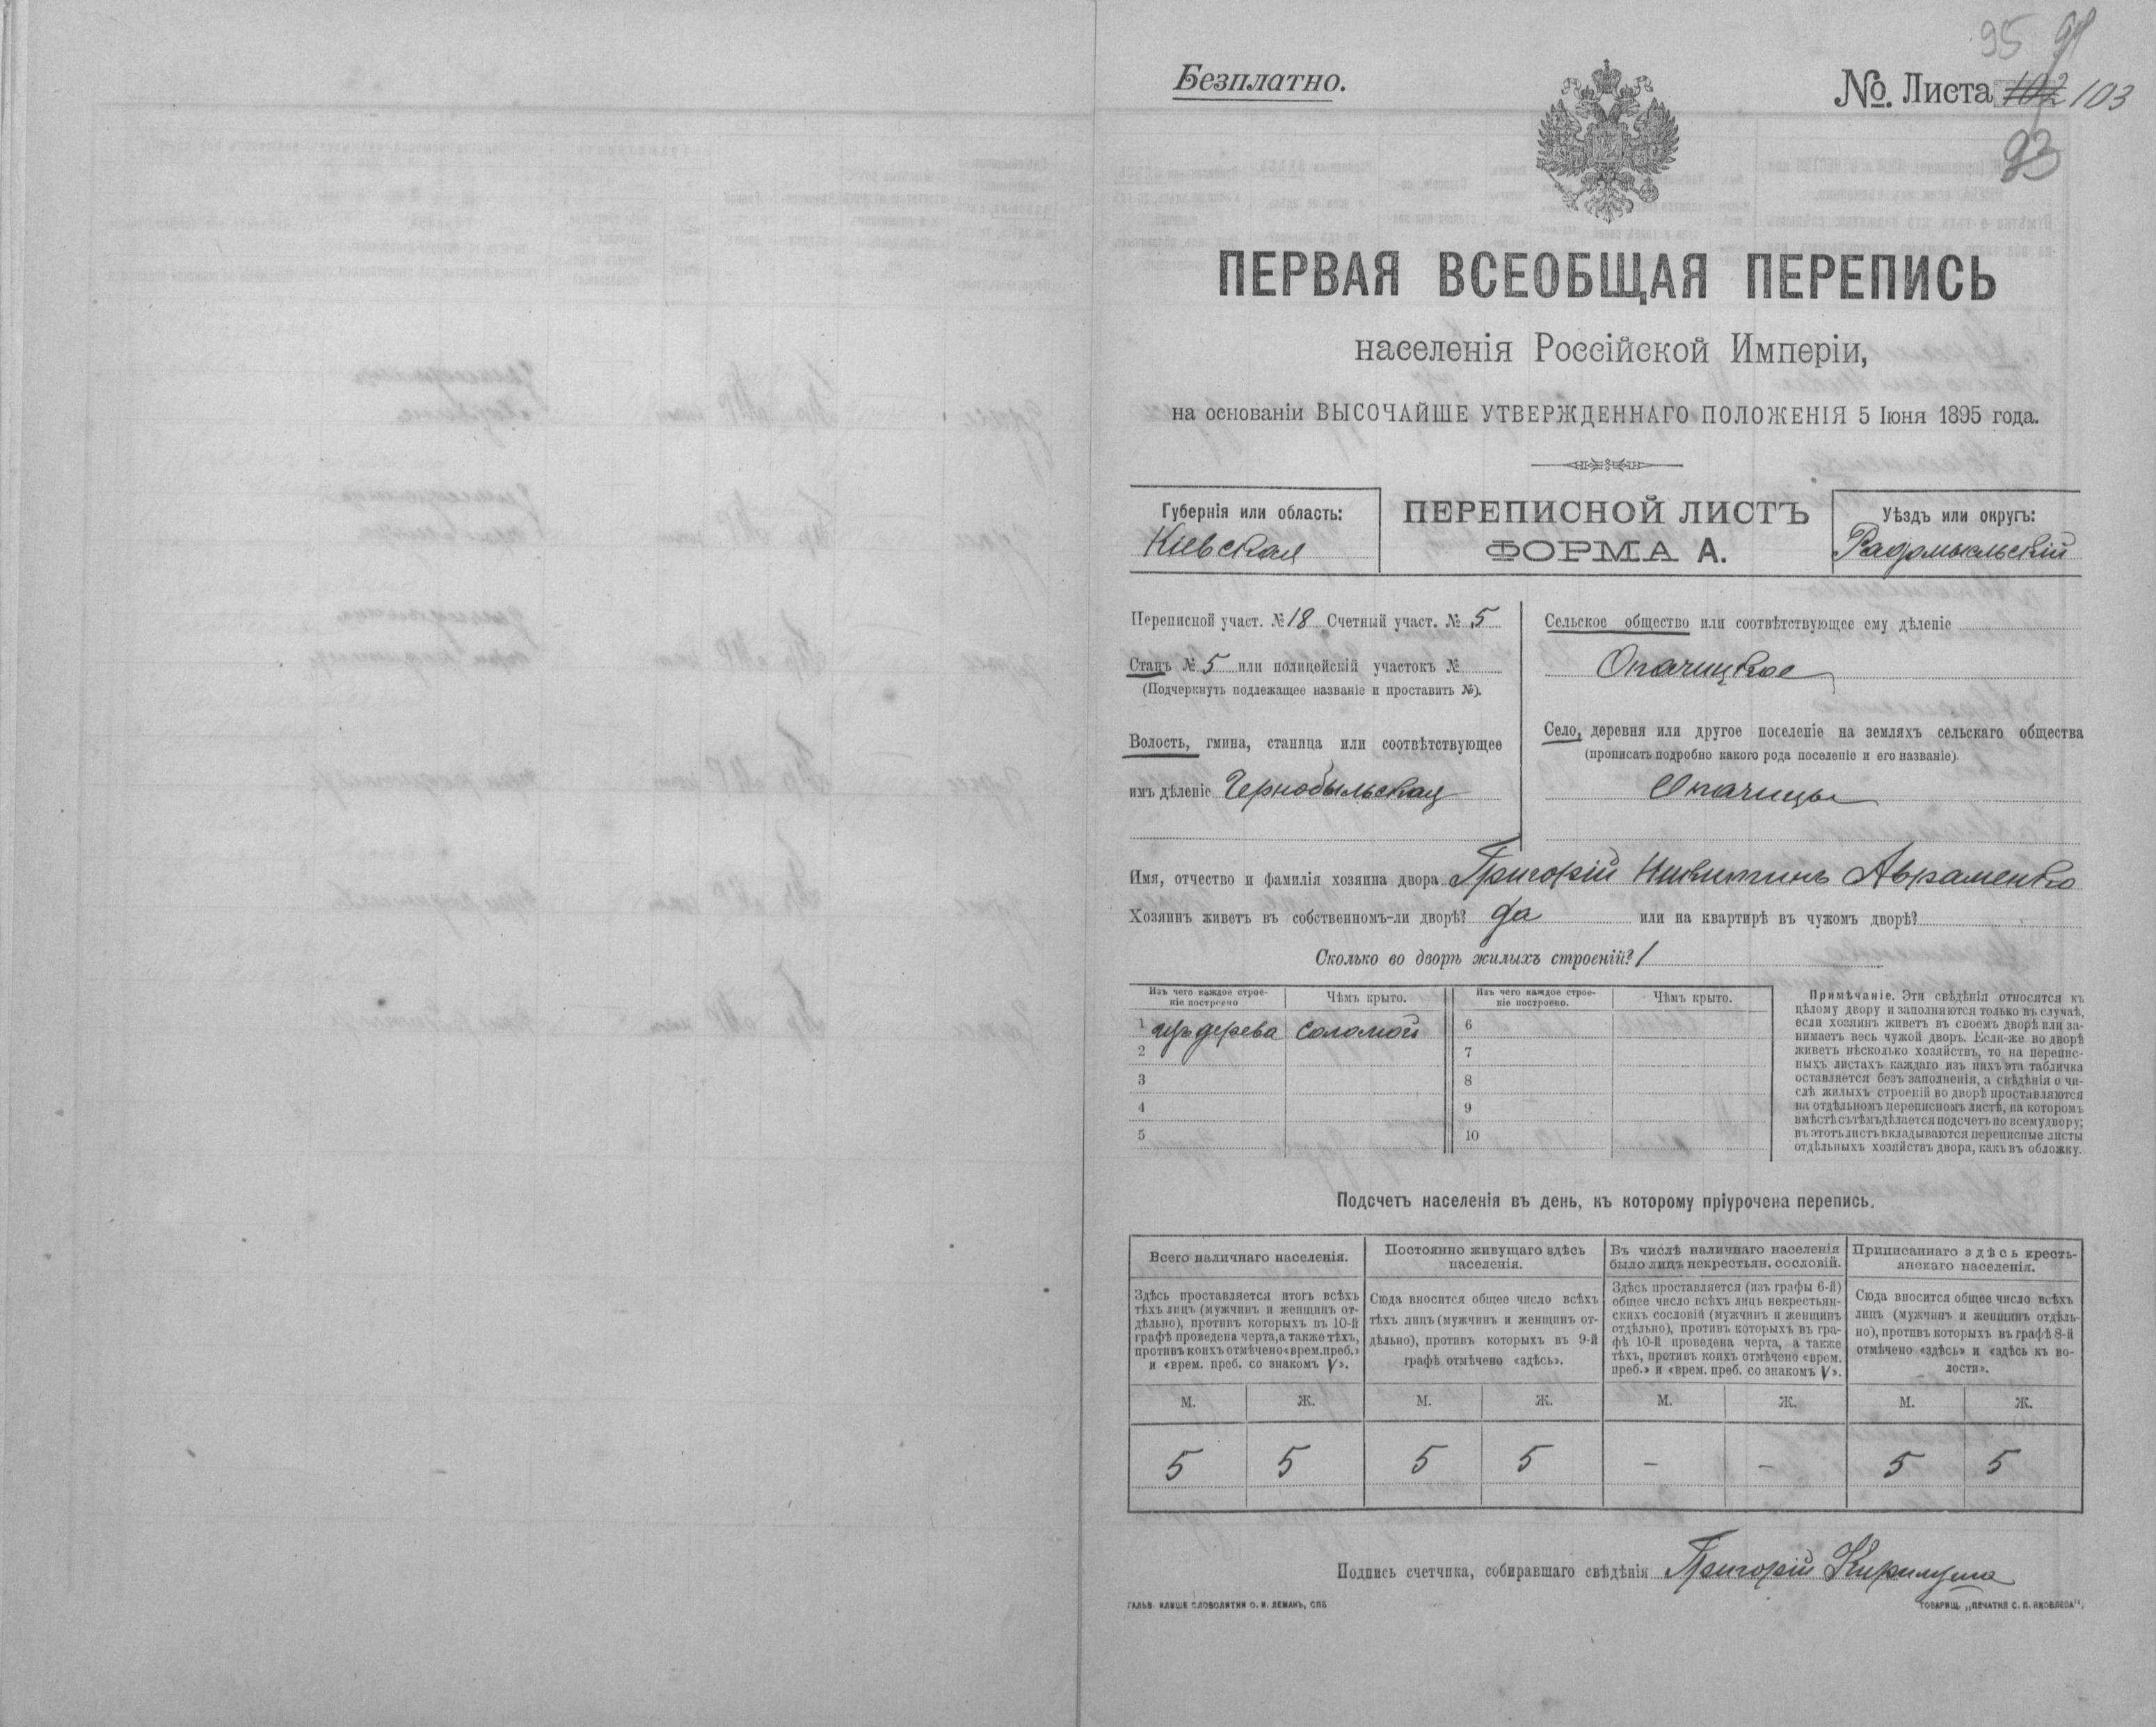 95 91
Безплатно.
№. Листа 102 103
93
ПЕРВАЯ ВСЕОБЩАЯ ПЕРЕПИСЬ
населенія Россійской Имперіи,
на основаніи ВЫСОЧАЙШЕ УТВЕРЖДЕННАГО ПОЛОЖЕНІЯ 5 Іюня 1895 года.
Губернія или область:
Кіевская
ПЕРЕПИСНОЙ ЛИСТЪ
ФОРМА А.
Уѣздъ или округъ:
Радомысльскій
Переписной участ. № 18 Счетный участ. № 5
Станъ № 5 или полицейскій участокъ №
(Подчеркнуть подлежащее названіе и проставить №).
Волость, гмина, станица или соотвѣтствующее
имъ дѣленіе Чернобыльская
Сельское общество или соотвѣтствующее ему дѣленіе
Опачицкое
Село, деревня или другое поселеніе на земляхъ сельскаго общества
(прописать подробно какого рода поселеніе и его названіе).
Опачицы
Имя, отчество и фамилія хозяина двора Григорій Никитинъ Авраменко
Хозяинъ живетъ въ собственномъ-ли дворѣ? да или на квартирѣ въ чужомъ дворѣ?
Сколько во дворѣ жилыхъ строеній? 1
Изъ чего каждое строе-
ніе построено
Чѣмъ крыто.
Изъ чего каждое строе-
ніе построено.
Чѣмъ крыто.
1 изъ дерева соломой 6
2 7
3 8
4 9
5 10
Примѣчаніе. Эти свѣдѣнія относятся къ
цѣлому двору и заполняются только въ случаѣ,
если хозяинъ живетъ въ своемъ дворѣ или за-
нимаетъ весь чужой дворъ. Если-же во дворѣ
живетъ нѣсколько хозяйствъ, то на перепис-
ныхъ листахъ каждаго изъ нихъ эта табличка
оставляется безъ заполненія, а свѣдѣнія о чи-
слѣ жилыхъ строеній во дворѣ проставляются
на отдѣльномъ переписномъ листѣ, на которомъ
вмѣстѣ съ тѣмъ дѣлается подсчетъ по всему двору;
въ этотъ листъ вкладываются переписные листы
отдѣльныхъ хозяйствъ двора, какъ въ обложку.
Подсчетъ населенія въ день, къ которому пріурочена перепись.
Всего наличнаго населенія.
Здѣсь проставляется итогъ всѣхъ
тѣхъ лицъ (мужчинъ и женщинъ от-
дѣльно), противъ которыхъ въ 10-й
графѣ проведена черта, а также тѣхъ,
противъ коихъ отмѣчено «врем. преб.»
и «врем. преб. со знакомъ V».
Постоянно живущаго здѣсь
населенія.
Сюда вносится общее число всѣхъ
тѣхъ лицъ (мужчинъ и женщинъ от-
дѣльно), противъ которыхъ въ 9-й
графѣ отмѣчено «здѣсь».
Въ числѣ наличнаго населенія
было лицъ некрестьян. сословій.
Здѣсь проставляется (изъ графы 6-й)
общее число всѣхъ лицъ некрестьян-
скихъ сословій (мужчинъ и женщинъ
отдѣльно), противъ которыхъ въ гра-
фѣ 10-й проведена черта, а также
тѣхъ, противъ коихъ отмѣчено «врем.
преб.» и «врем. преб. со знакомъ V».
Приписаннаго здѣсь кресть-
янскаго населенія.
Сюда вносится общее число всѣхъ
лицъ (мужчинъ и женщинъ отдѣль-
но), противъ которыхъ въ графѣ 8-й
отмѣчено «здѣсь» и «здѣсь къ во-
лости».
М. Ж. М. Ж. М. Ж. М. Ж.
5 5 5 5 - - 5 5
Подпись счетчика, собиравшаго свѣдѣнія Григорій
ГАЛЬВ. КЛИШЕ СЛОВОЛИТНИ О. И. ЛЕМАНЪ, СПБ
ТОВАРИЩ. „ПЕЧАТНЯ С. П. ЯКОВЛЕВА".